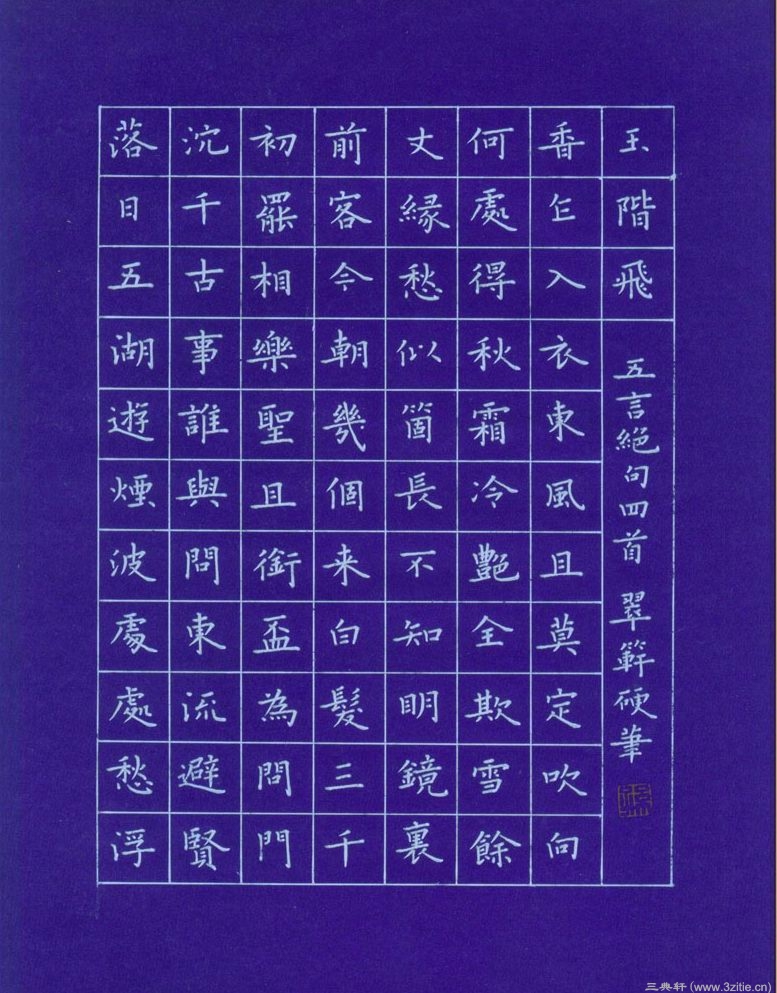 落日五湖遊煙波處處愁浮
沉千古事誰與問東流避賢
初罷相樂聖且銜盃為問門
前客今朝幾個来白髮三千
丈緣愁似箇長不知明鏡裏
何處得秋霜冷艷全欺雪餘
香乍入衣東風且莫定吹向
玉階飛
五言絕句四首 翠硬筆
三典轩(www.3zitie.cn)